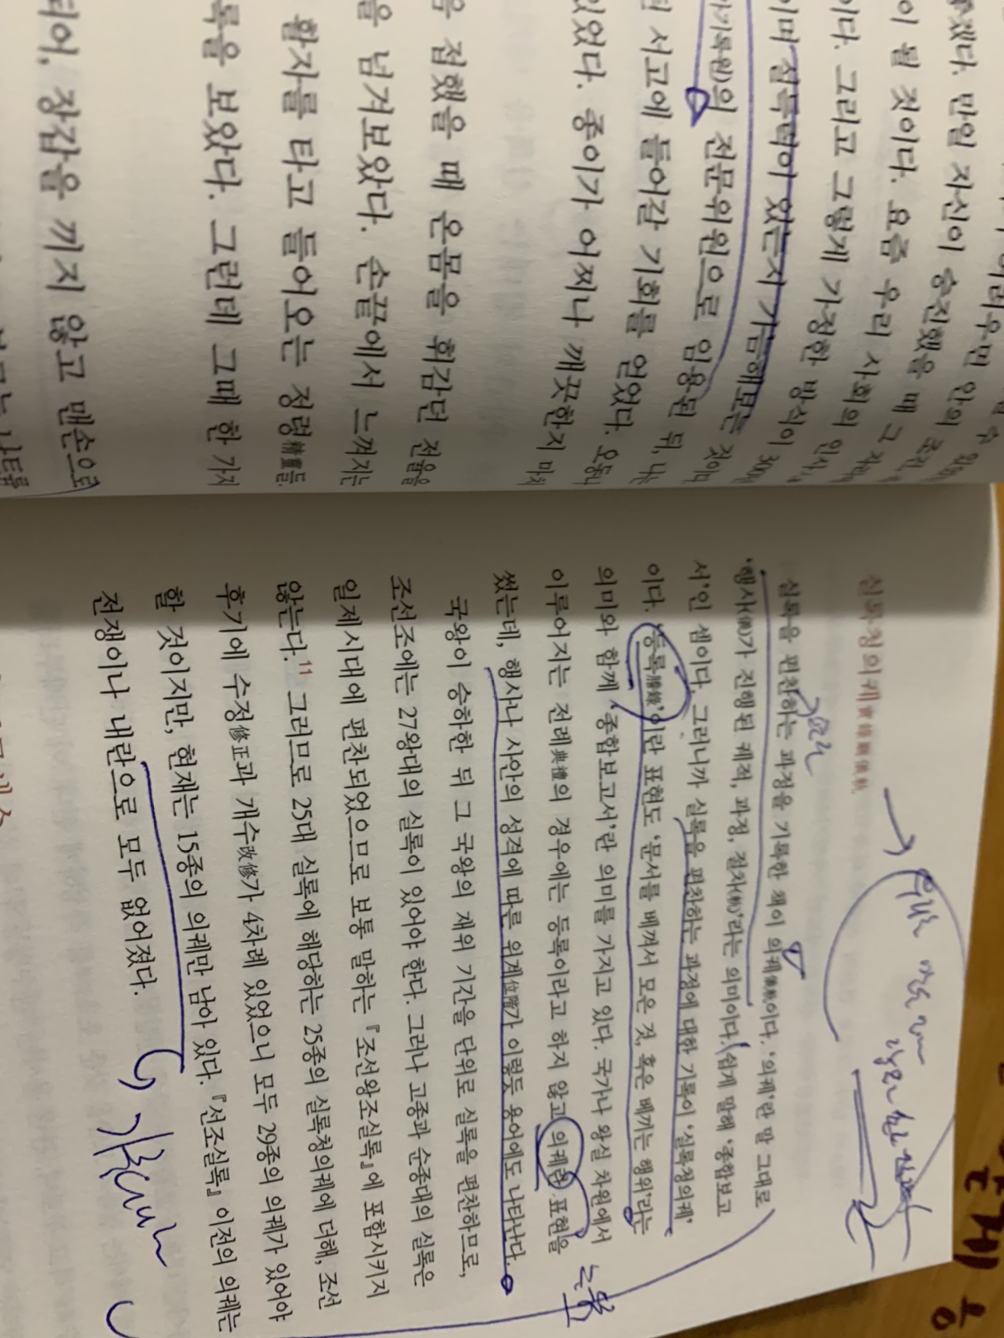 겠다. 만일 자신이 승진했을 때 그 자리
이 될 것이다. 요즘 우리 사회의 인사
이다. 그리고 그렇게 가정한 방식이 300
이며 설득력이 있는지 가늠해보는 것이며
기록원)의 전문위원으로 임용된 뒤, 나는
서고에 들어갈 기회를 얻었다. 오동나
있었다. 종이가 어찌나 깨끗한지 마치
을 접했을 때 온몸을 휘감던 전율을
을 넘겨보았다. 손끝에서 느껴지는
활자를 타고 들어오는 정령精靈들.
록을 보았다. 그런데 그때 한 가지
되어, 장갑을 끼지 않고 맨손으로
실록청의궤實錄廳儀軌
실록을 편찬하는 과정을 기록한 책이 의궤儀軌이다. '의궤'란 말 그대로
'행사(儀)가 진행된 궤적, 과정, 절차(軌)'라는 의미이다. (쉽게 말해 '종합보고
서'인 셈이다. 그러니까 실록을 편찬하는 과정에 대한 기록이 '실록청의궤'
이다. '등록謄錄'이란 표현도 '문서를 베껴서 모은 것, 혹은 베끼는 행위'라는
의미와 함께 '종합보고서'란 의미를 가지고 있다. 국가나 왕실 차원에서
이루어지는 전례典禮의 경우에는 등록이라고 하지 않고 의궤란 표현을
썼는데, 행사나 사안의 성격에 따른 위계位階가 이렇듯 용어에도 나타난다.
국왕이 승하한 뒤 그 국왕의 재위 기간을 단위로 실록을 편찬하므로,
조선조에는 27왕대의 실록이 있어야 한다. 그러나 고종과 순종대의 실록은
일제시대에 편찬되었으므로 보통 말하는 『조선왕조실록』에 포함시키지
않는다.11 그러므로 25대 실록에 해당하는 25종의 실록청의궤에 더해, 조선
후기에 수정修正과 개수改修가 4차례 있었으니 모두 29종의 의궤가 있어야
할 것이지만, 현재는 15종의 의궤만 남아 있다. 『선조실록』 이전의 의궤는
전쟁이나 내란으로 모두 없어졌다.